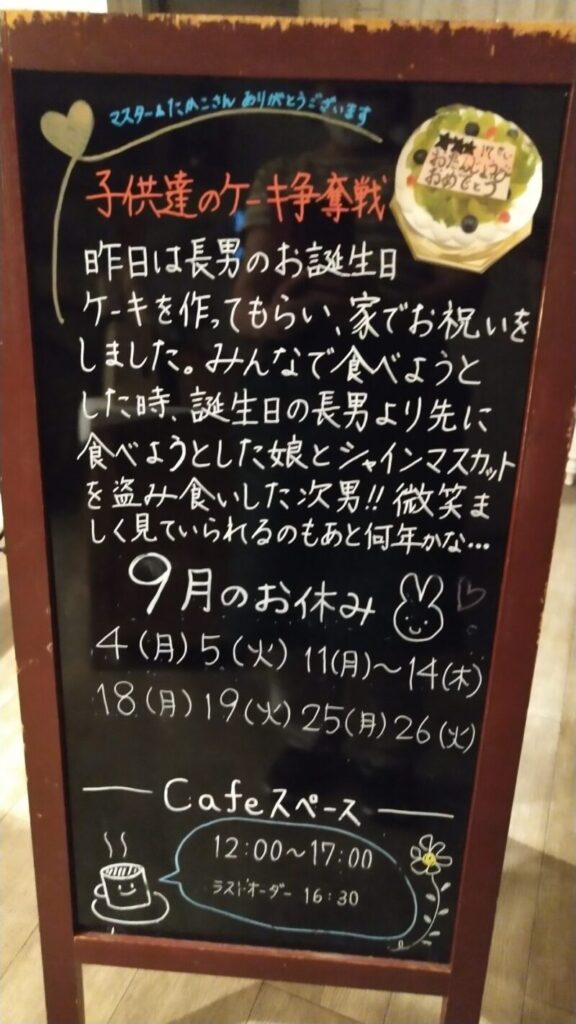 マスター&たかこさん ありがとうございます
おたんじょうび
おめでとう
子供達のケーキ争奪戦
昨日は長男のお誕生日
ケーキを作ってもらい、家でお祝いを
しました。みんなで食べようと
した時、誕生日の長男より先に
食べようとした娘とシャインマスカット
を盗み食いした次男!! 微笑ま
しく見ていられるのもあと何年かな…
9月のお休み
4(月)5(火)11(月)~14(木)
18(月)19(火)25(月)26(火)
Cafeスペース
12:00~17:00
ラストオーダー 16:30